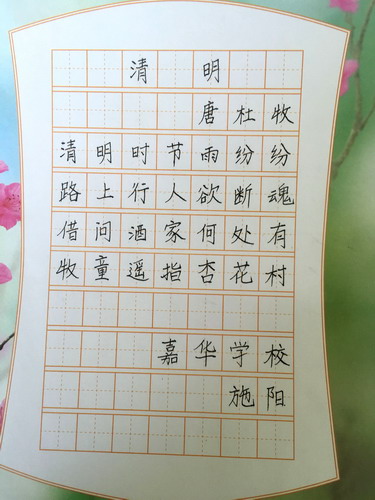 清明
唐杜牧
清明时节雨纷纷
路上行人欲断魂
借问酒家何处有
牧童遥指杏花村
嘉华学校
施阳